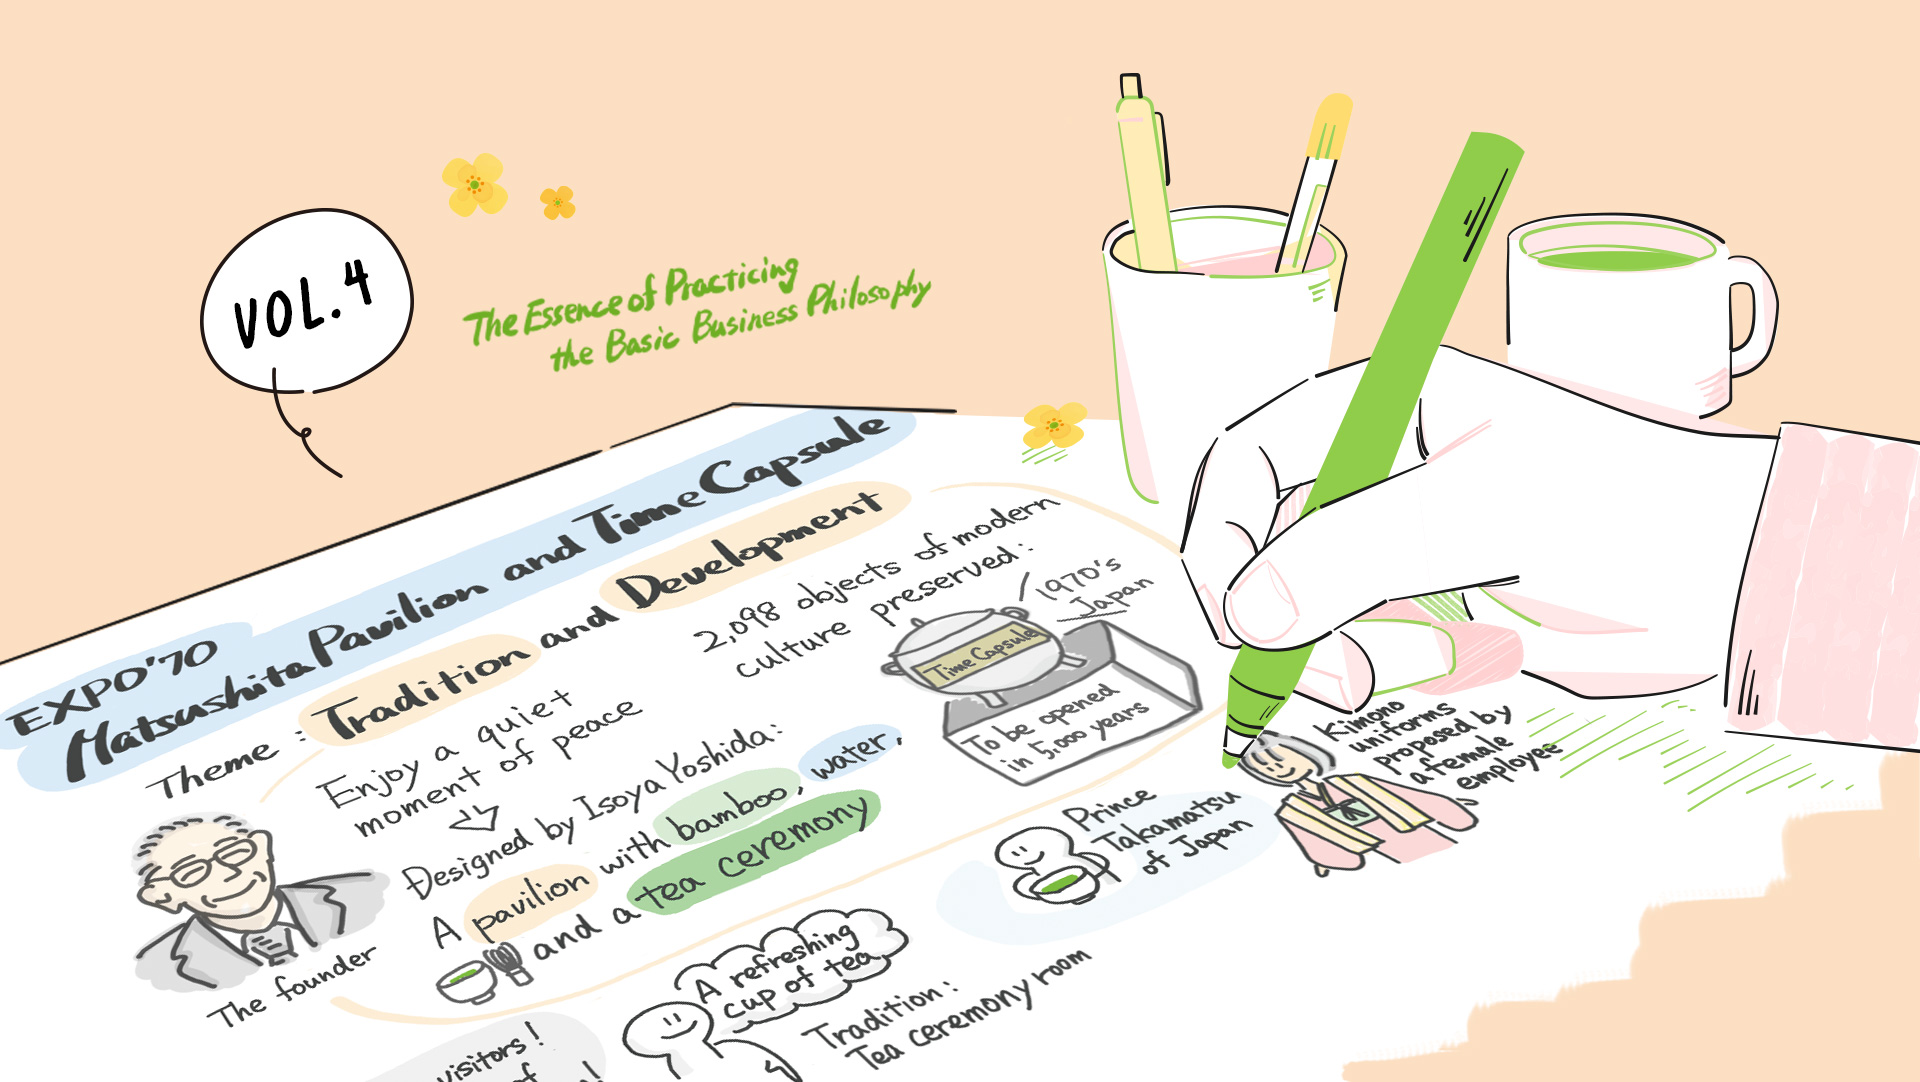 VOL.4
The Essence of Practicing
the Basic Business Philosophy
EXPO'70
Matsushita Pavilion and Time Capsule
Theme : Tradition and Development
Enjoy a quiet
moment of peace
Designed by Isoya Yoshida:
A pavilion with bamboo, water,
and a tea ceremony
The founder
2,098 objects of modern
culture preserved:
1970's
Japan
Time Capsule
To be opened
in 5,000 years
Kimono
uniforms
proposed by
a female
employee
Prince
Takamatsu
of Japan
A refreshing
cup of tea
Tradition:
Tea ceremony room
visitors!
of